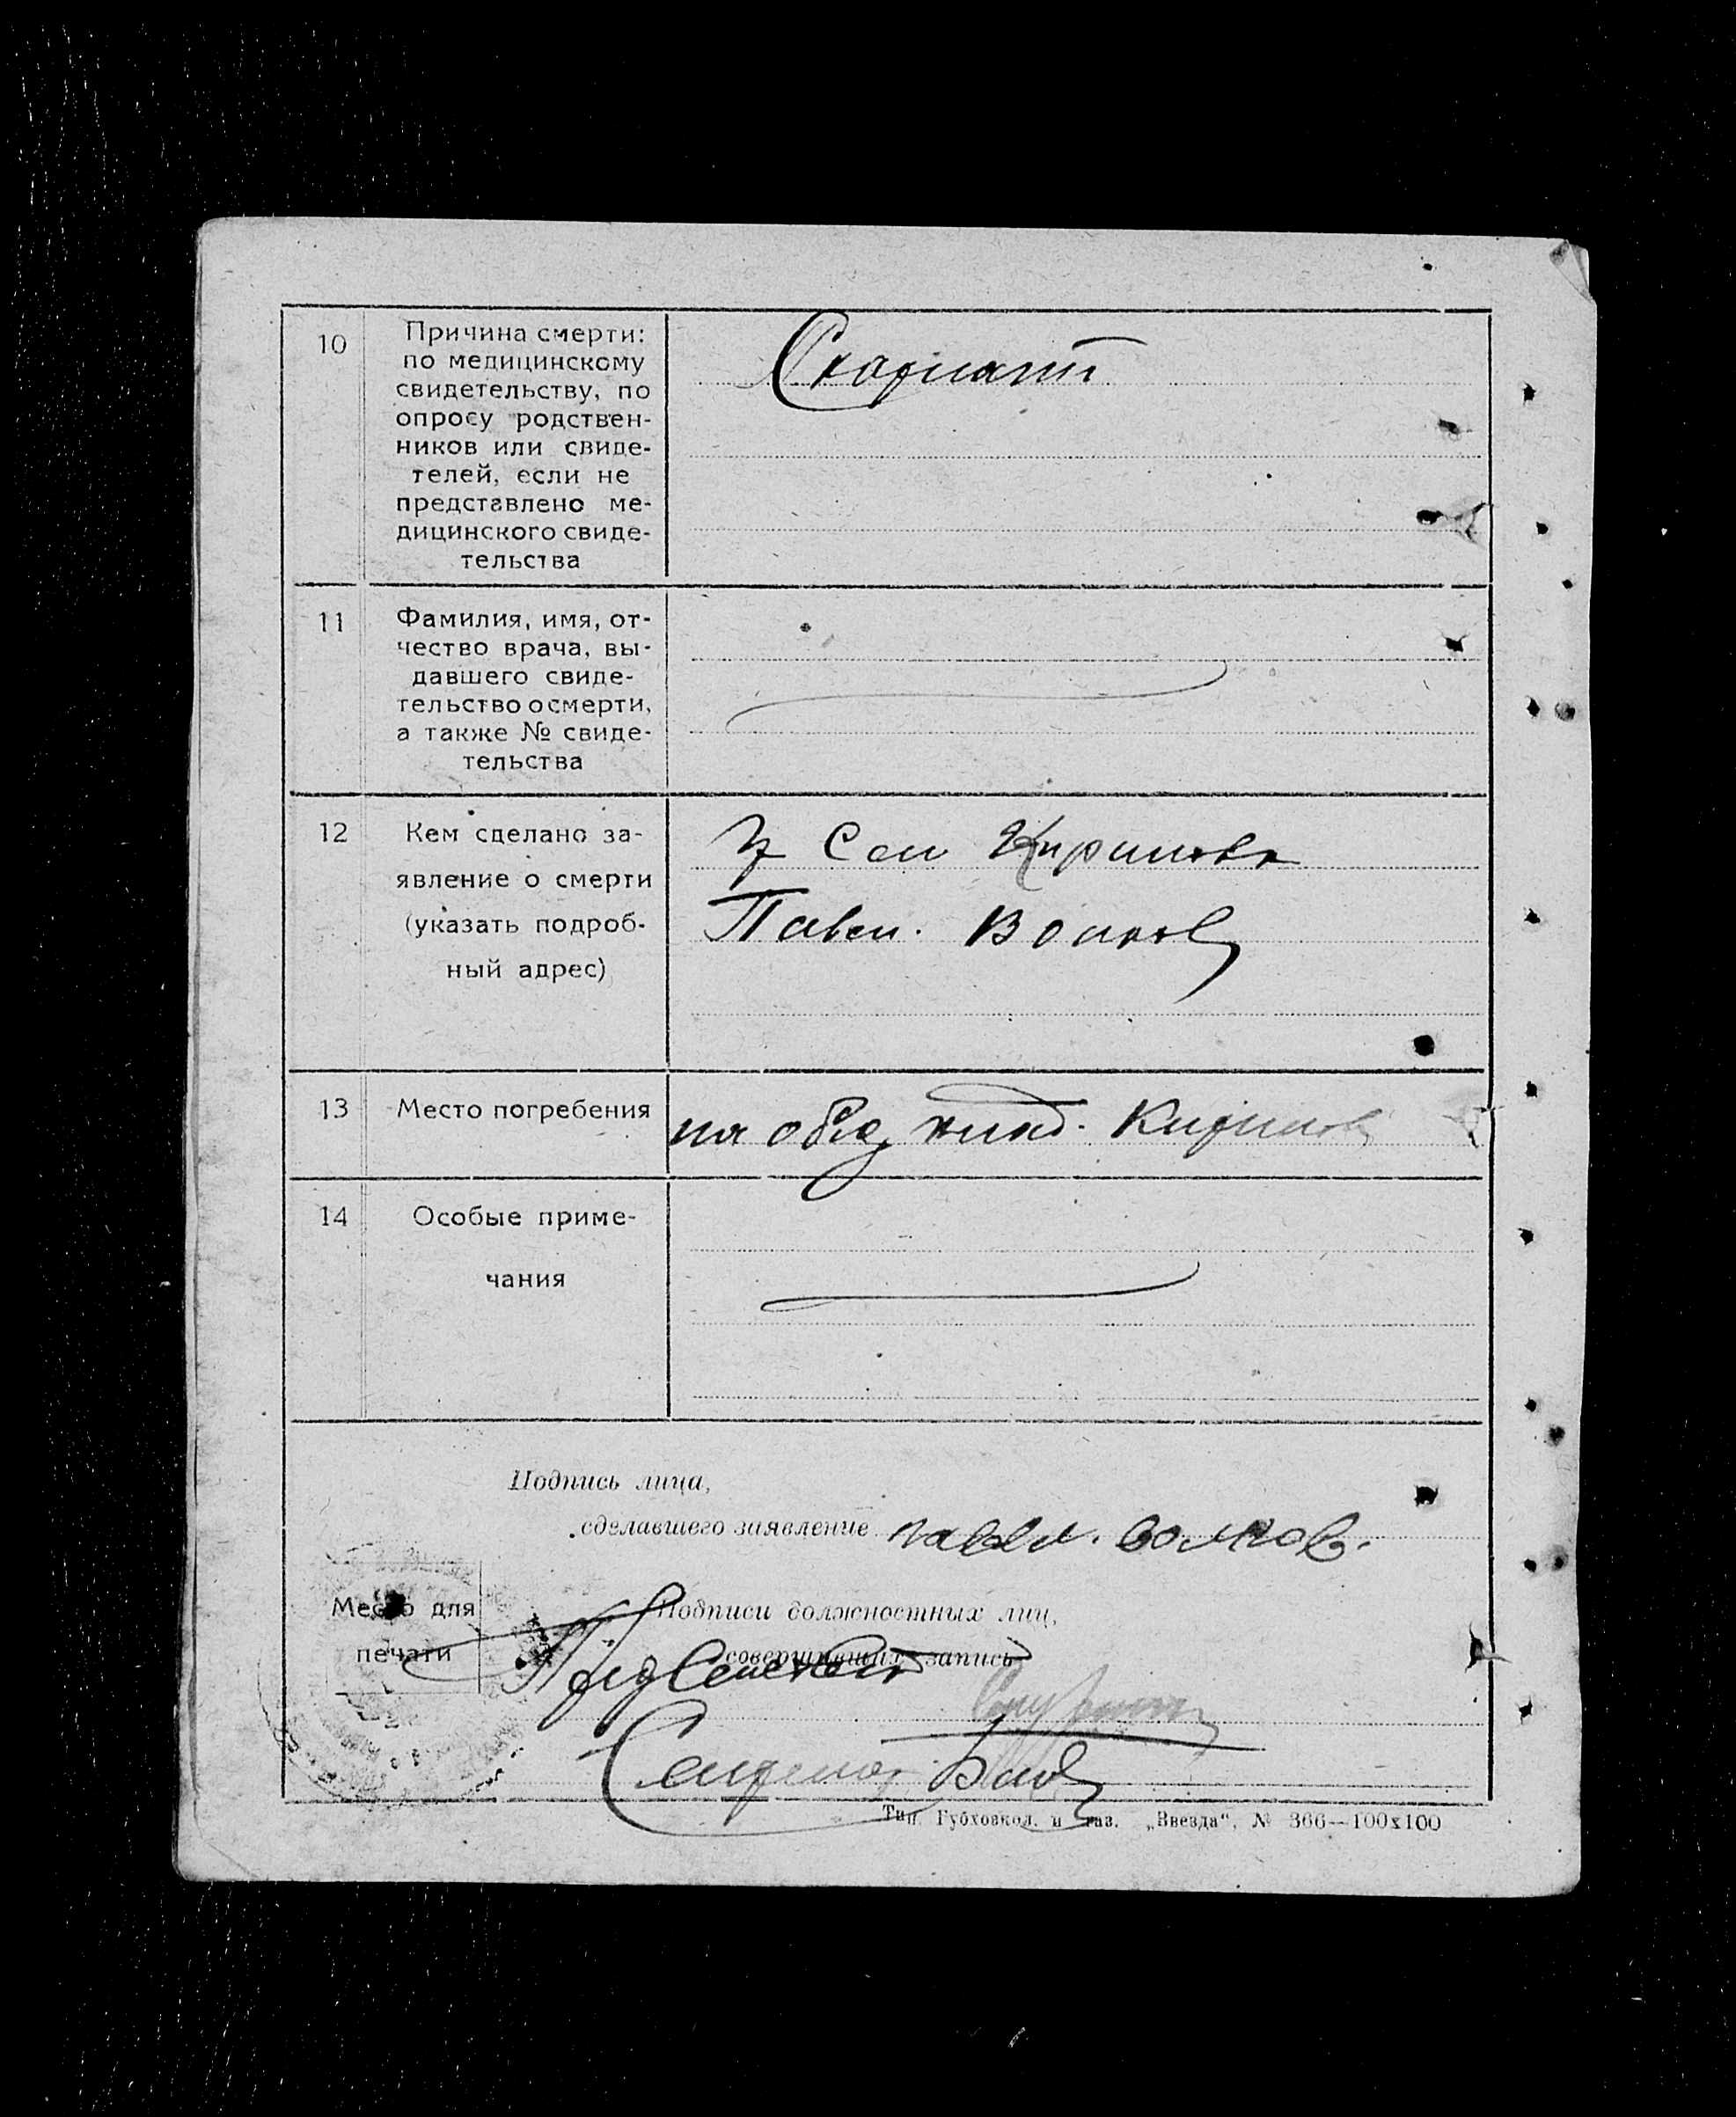 10
Причина смерти:
по медицинскому
свидетельству, по
опросу родствен-
ников или свиде-
телей, если не
представлено ме-
дицинского свиде-
тельства
Скарлат
11
Фамилия, имя, от-
чество врача, вы-
давшего свиде-
тельство о смерти,
а также № свиде-
тельства
12
Кем сделано за-
явление о смерти
(указать подроб-
ный адрес)
Сел Кирилова
Павел. Волков
13
Место погребения
на общ клад. Кирилов
14
Особые приме-
чания
Подпись лица,
сделавшего заявление павел. волков.
Место для
печати
Подписи должностных лиц,
совершивших запись
Пред Сельсовет
Секретар
Тип. Губховкод. и газ. „Звезда“, № 366—100x100